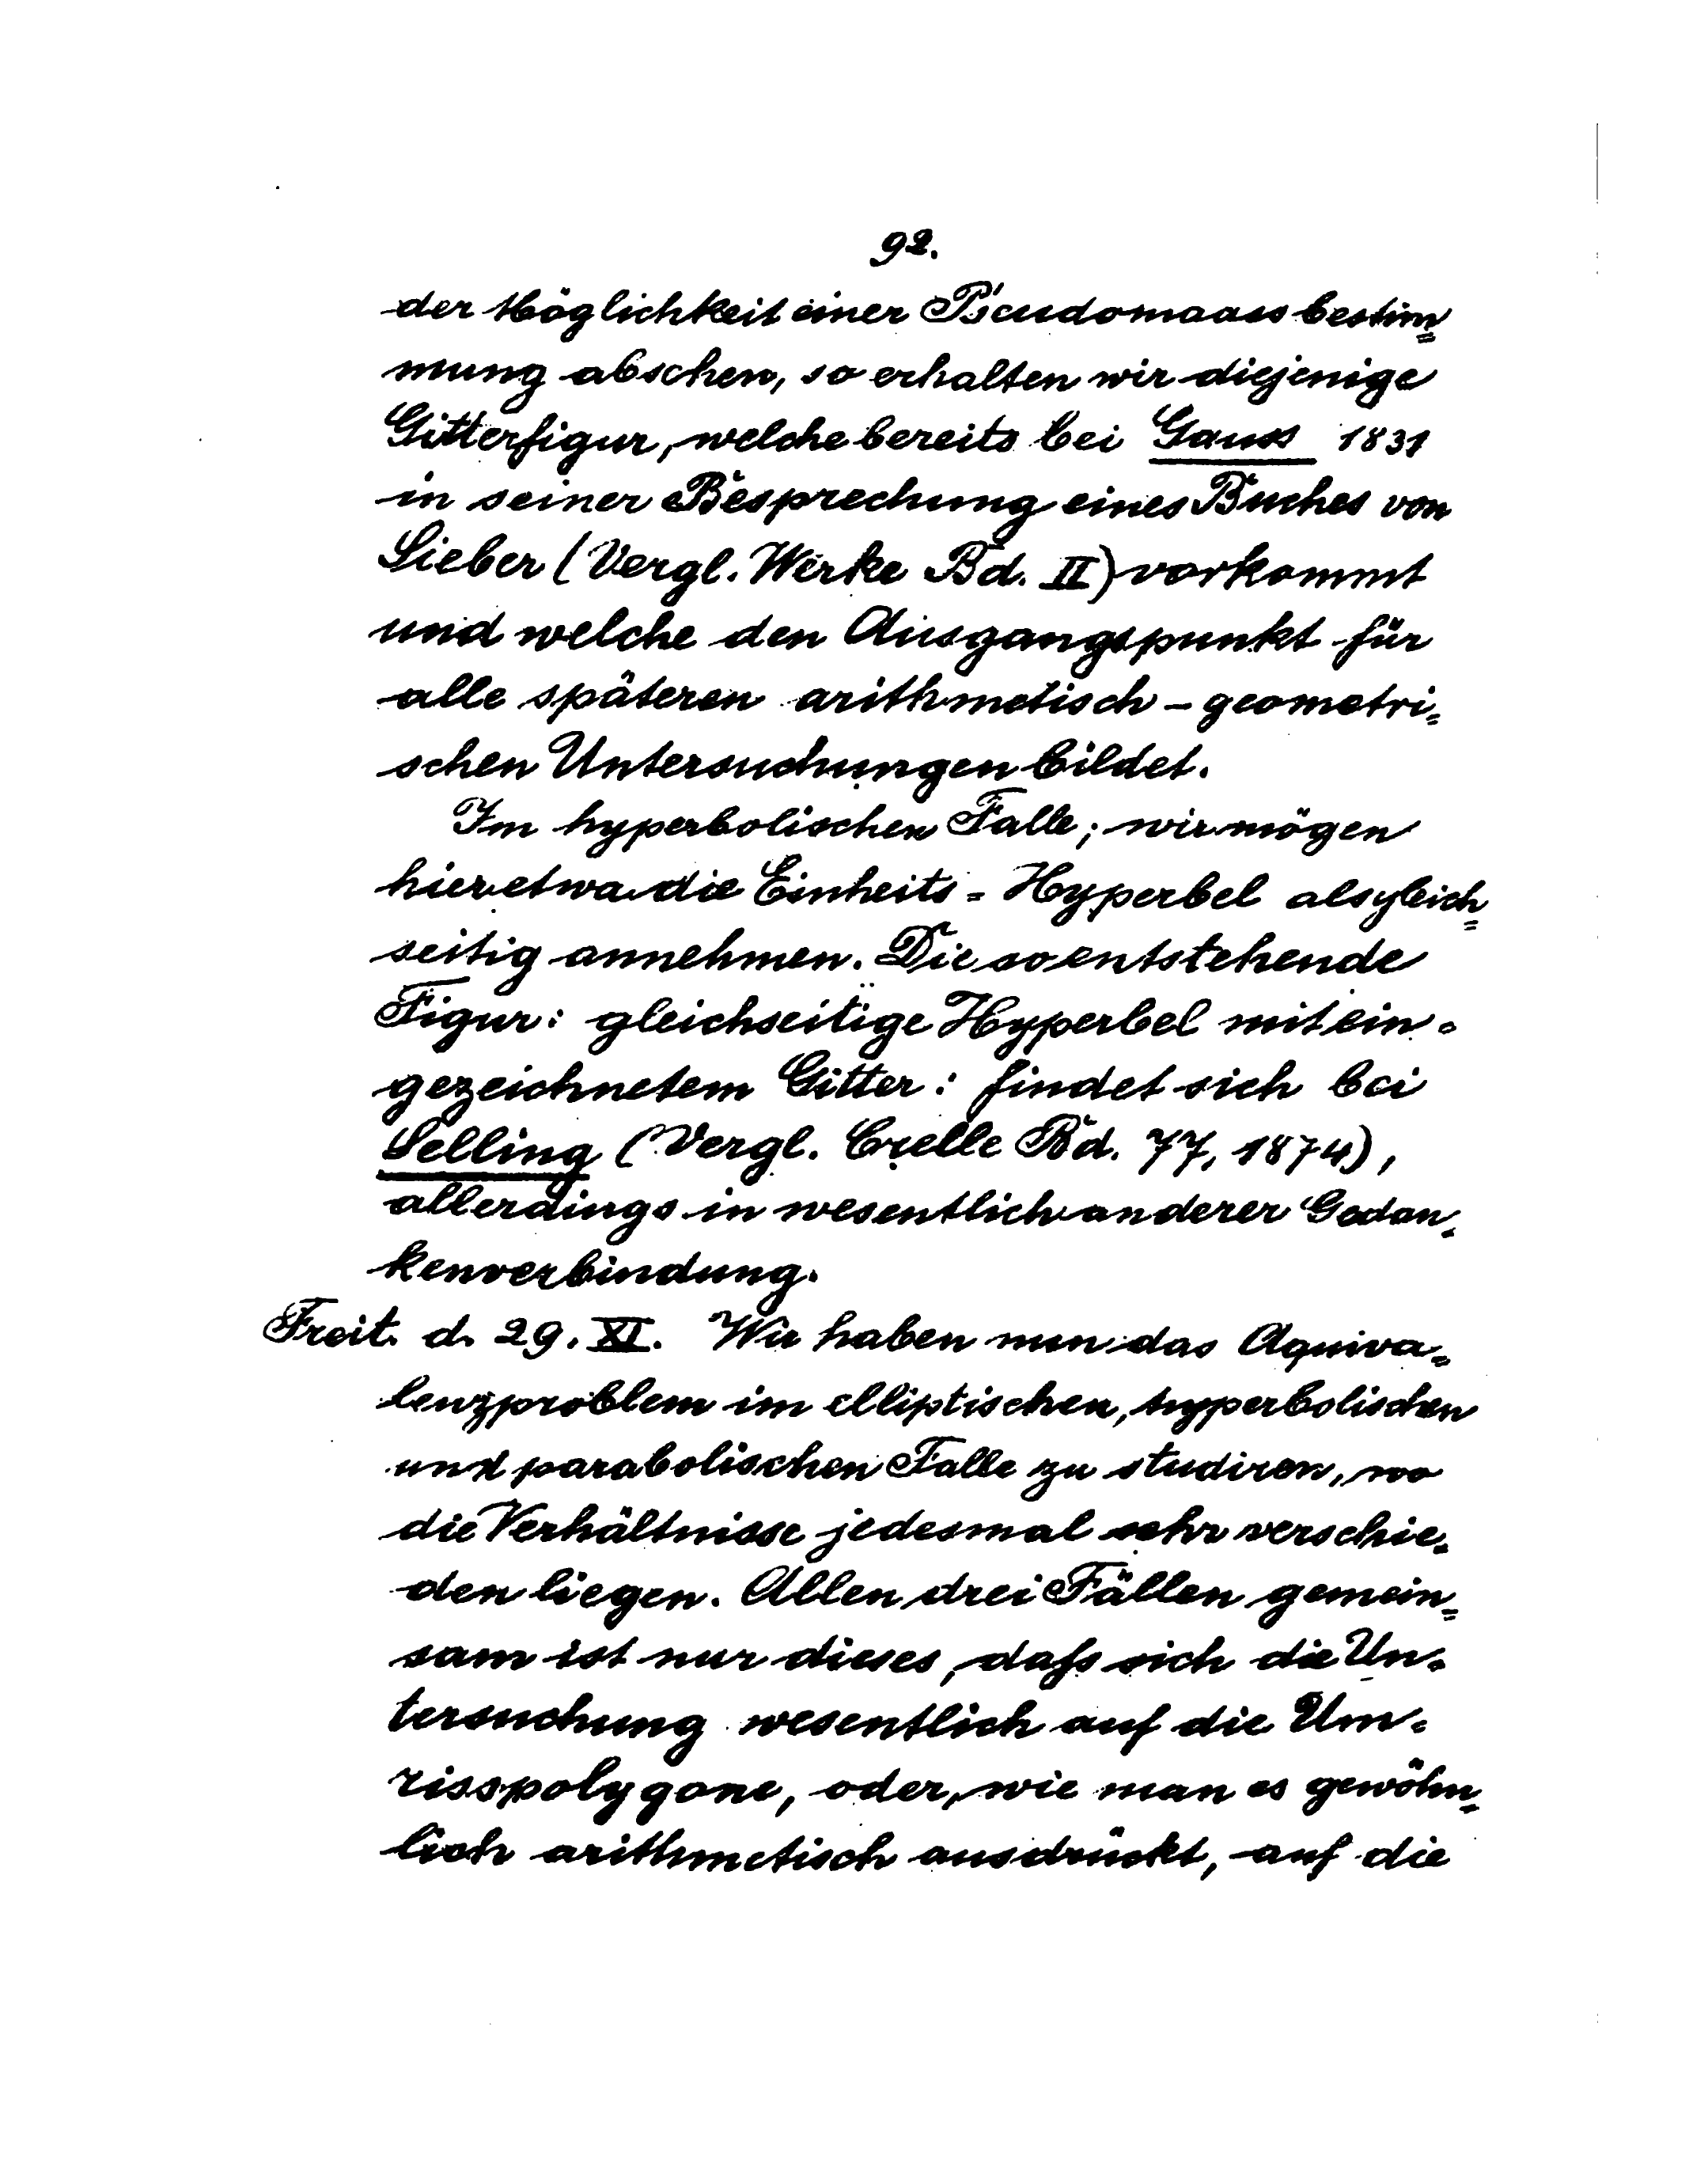 92.
der Möglichkeit einer Pseudomaassbestim=
mung absehen, so erhalten wir diejenige
Gitterfigur, welche bereits bei Gauss 1831
in seiner Besprechung eines Buches von
Lieber (Vergl. Werke Bd. II) vorkommt
und welche den Ausgangspunkt für
alle späteren arithmetisch-geometri=
schen Untersuchungen bildet.
Im hyperbolischen Falle; wir mögen
hier etwa die Einheits=Hyperbel als gleich=
seitig annehmen. Die so entstehende
Figur: gleichseitige Hyperbel mit ein=
gezeichnetem Gitter: findet sich bei
Selling (Vergl. Crelle Bd. 77, 1874),
allerdings in wesentlich anderer Gedan=
kenverbindung.
Freit. d. 29. XI. Wir haben nun das Aquiva=
lenzproblem im elliptischen, hyperbolischen
und parabolischen Falle zu studiren, wo
die Verhältnisse jedesmal sehr verschie=
den liegen. Allen drei Fällen gemein=
sam ist nur dieses, daſs sich die Un=
tersuchung wesentlich auf die Um=
risspolygone, oder, wie man es gewöhn=
lich arithmetisch ausdrückt, auf die